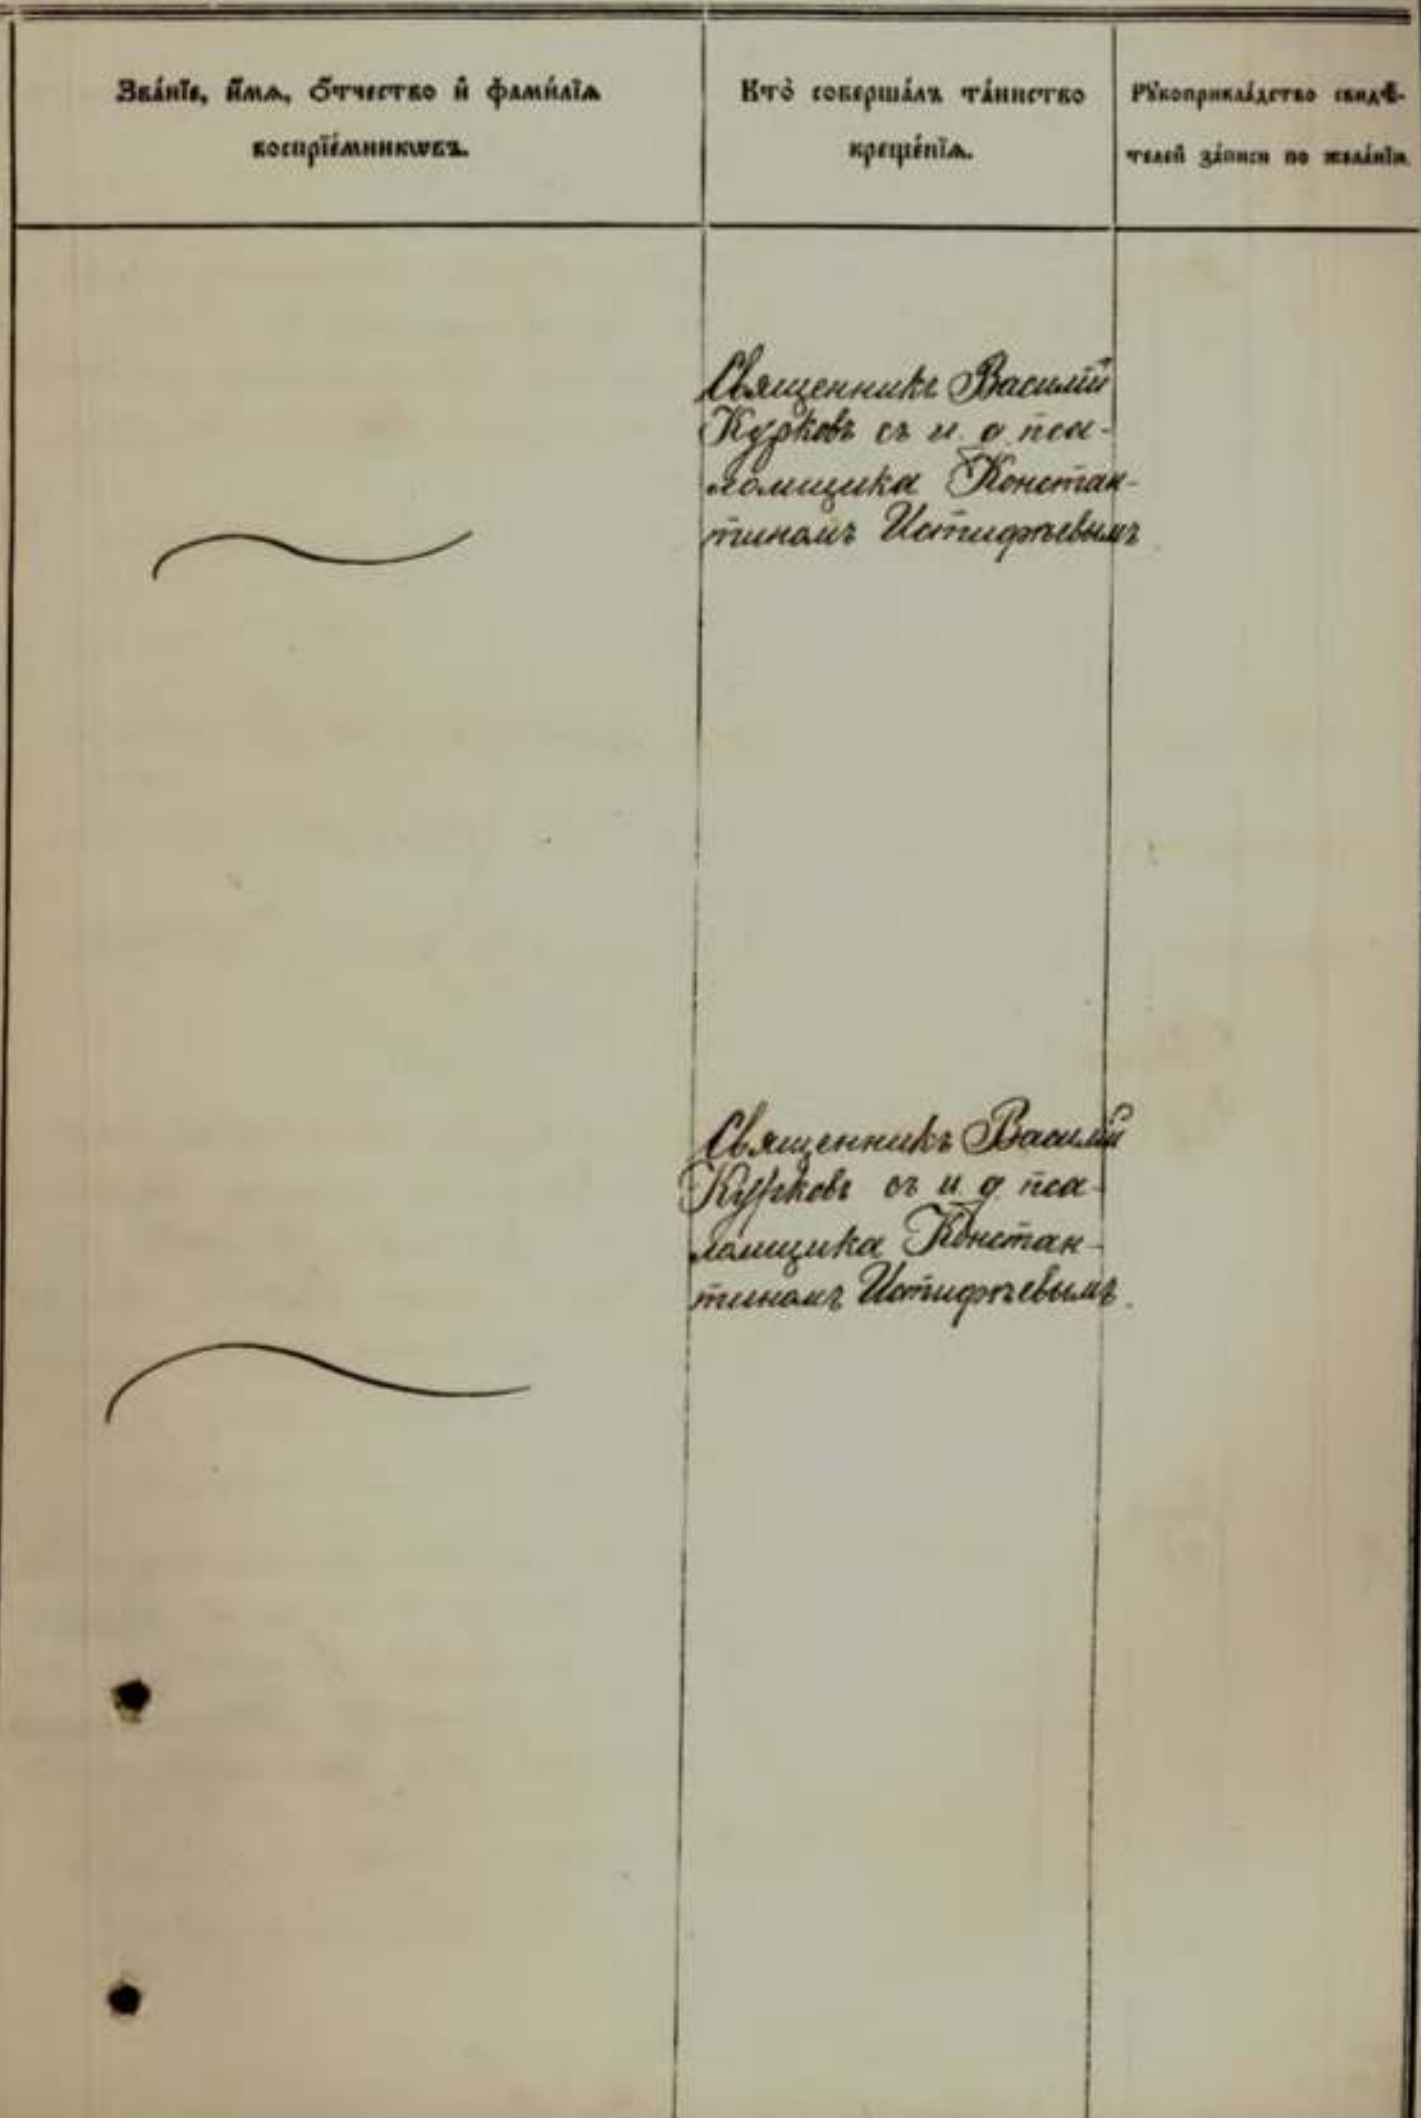 Зва́нїе, и҆́мѧ, ѻ҆́тчество и҆ фамѝлїѧ
воспрїе́мникѡвъ.
Кто̀ соверша́лъ та́инство
креще́нїѧ.
Рꙋкоприкла́дство свидѣ-
телей за́писи по жела́нїю
Священникъ Василій
Курковъ съ и. д. пса-
ломщика Констан-
тиномъ Истифѣевымъ
Священникъ Василій
Курковъ съ и д пса-
ломщика Констан-
тиномъ Истифѣевымъ.